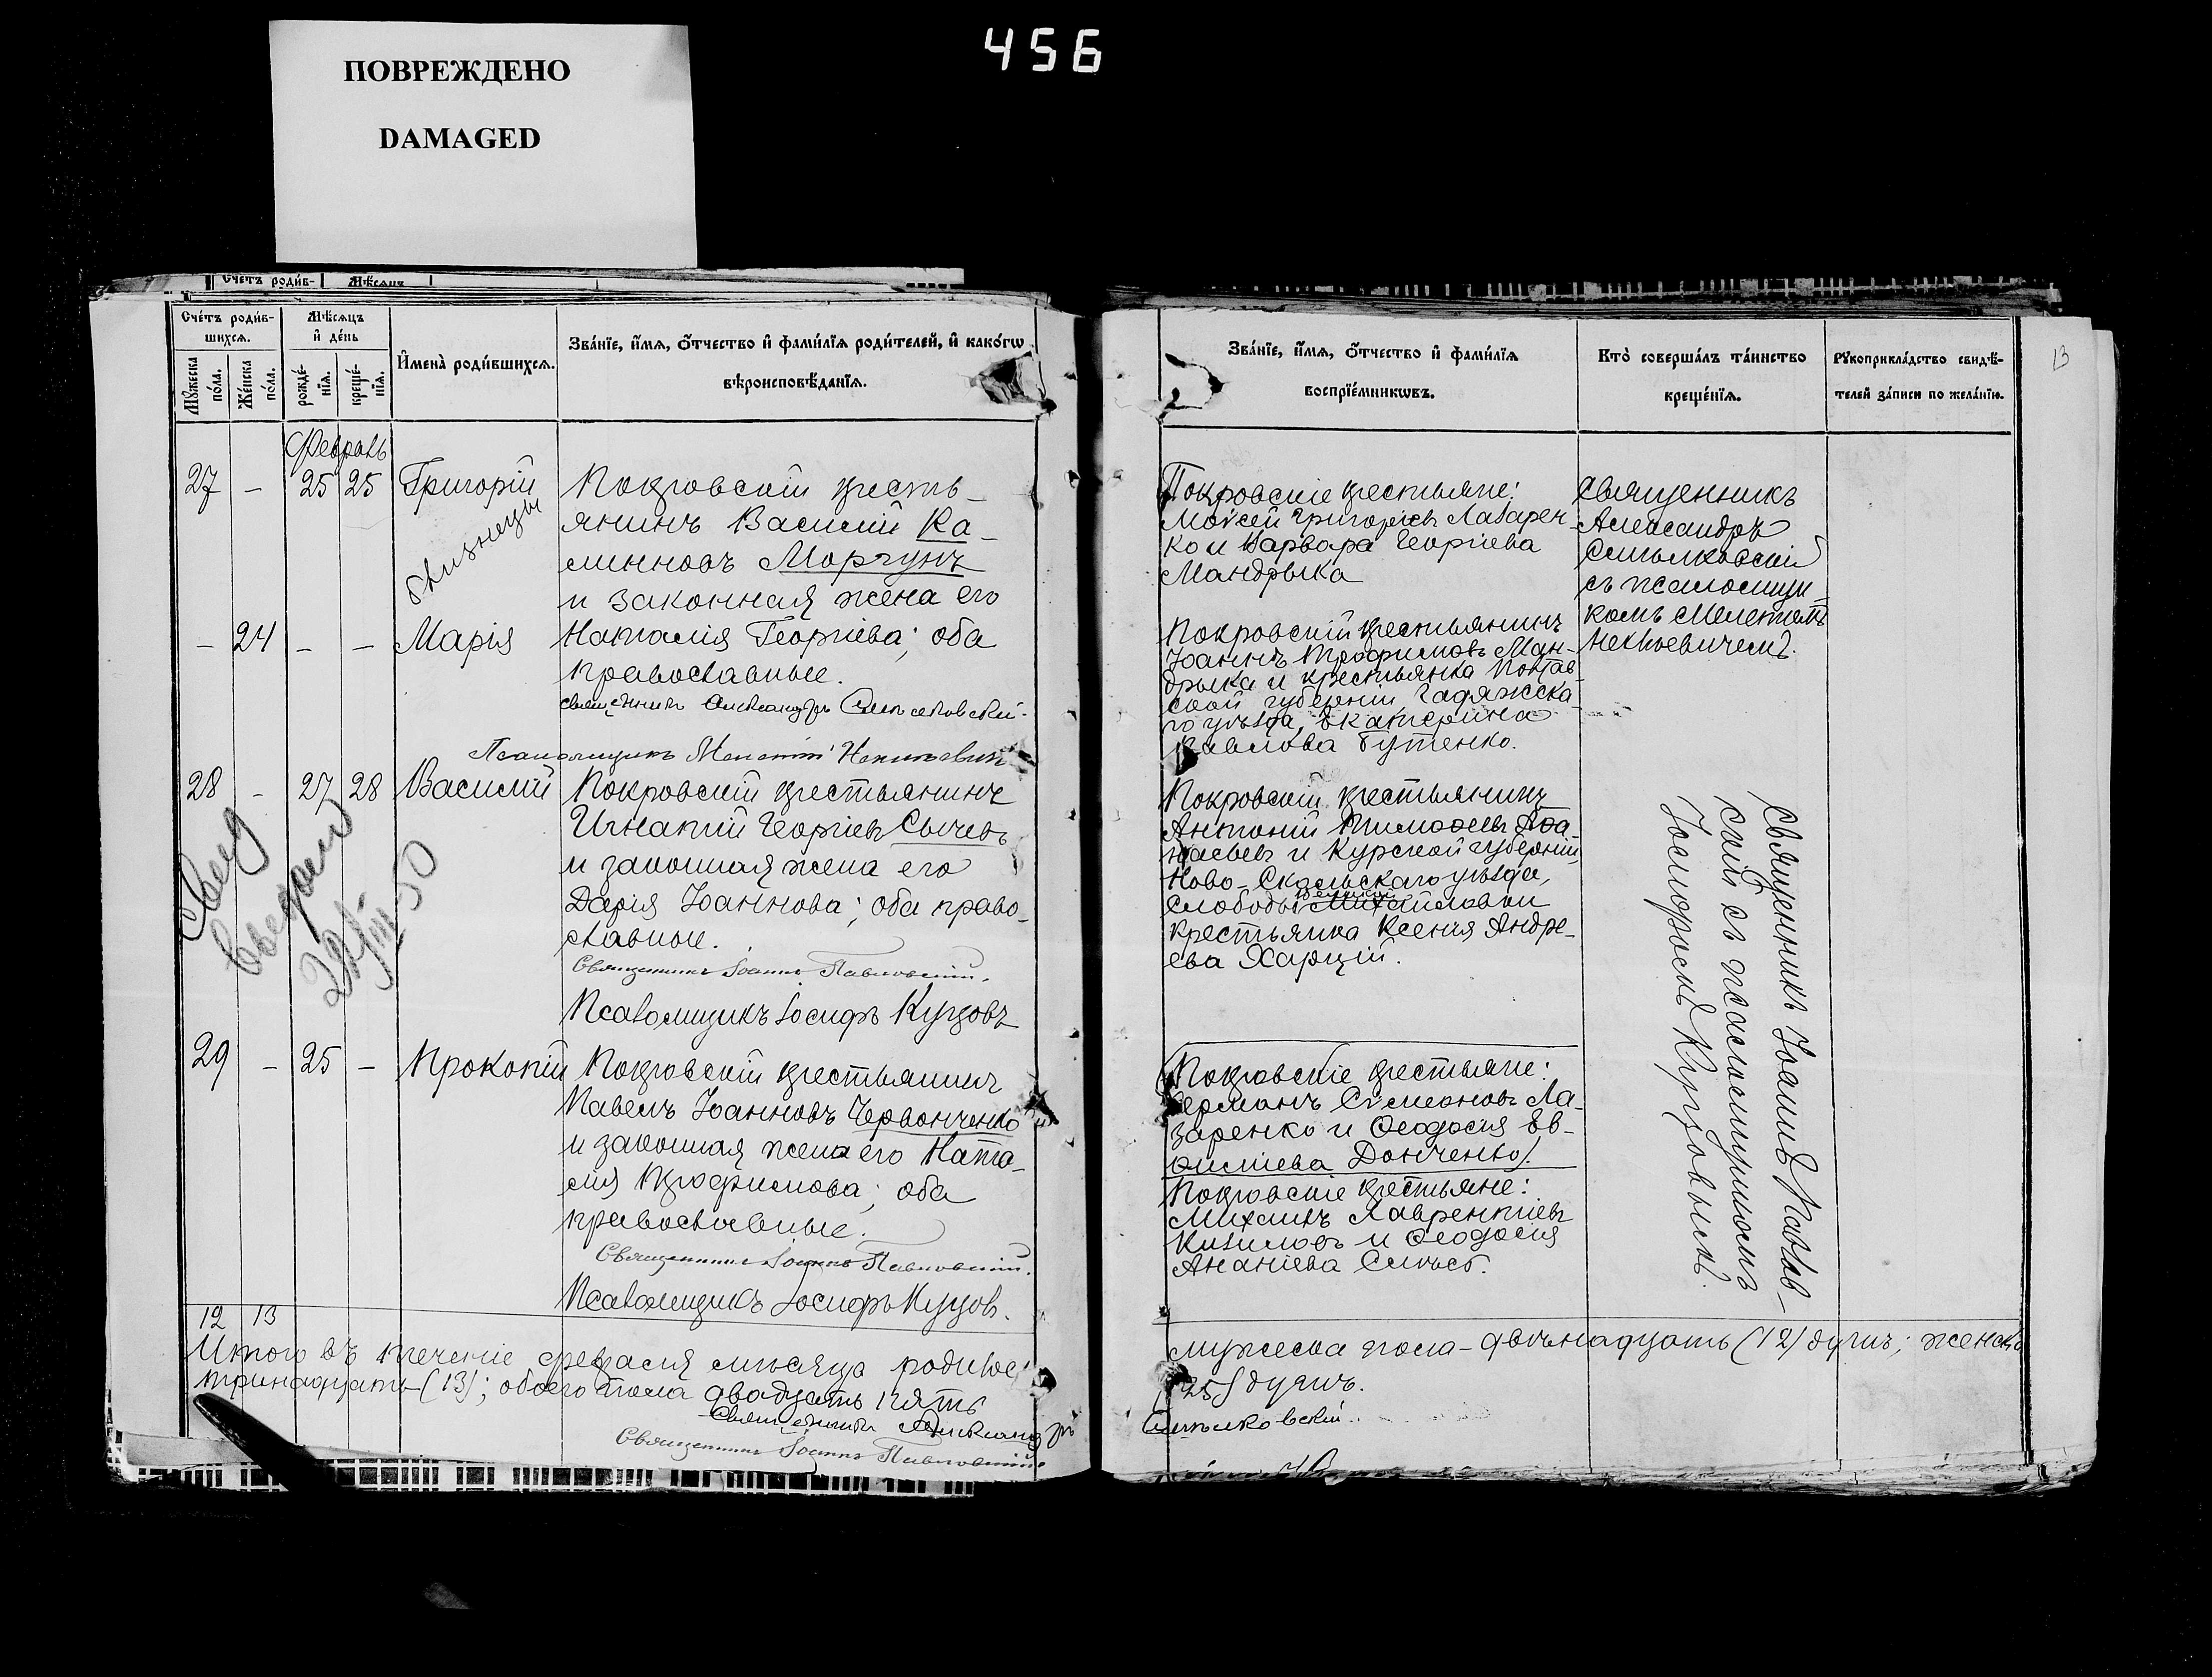 ПОВРЕЖДЕНО
DAMAGED
456
Счетъ родив-
Мѣсяцъ
Счетъ родив-
шихся.
Мужеска пола.
Женска пола.
Мѣсяцъ
и день
рожде-
нія.
креще-
нія.
Имена родившихся.
Званіе, имя, отчество и фамилія родителей, и какогѡ
вѣроисповѣданія.
Февраль
27 - 25 25 Григорій
близнецы
Покровскій кресть-
янинъ Василій Ка-
линновъ Моргунъ
и законная жена его
- 24 - - Марія Наталія Георгіева; оба
православные.
священникъ Александръ
Псаломщикъ Мелетій
28 - 27 28 Василій Покровскій крестьянинъ
Игнатій Георгіевъ Сычевъ
и законная жена его
Дарія Іоаннова; оба право-
славные.
Священникъ Іоаннъ Павловскій.
Псаломщикъ Іосифъ Курзовъ
29 - 25 - Прокопій Покровскій крестьянинъ
Павелъ Іоанновъ Червонченко
и законная жена его Ната-
лія Трофимова; оба
православные.
Священникъ Іоаннъ Павловскій.
Псаломщикъ Іосифъ Курзовъ.
12 13
Итого въ теченіе февраля мѣсяца родилось
тринадцать (13); обоего пола двадцать пять
Священникъ Александръ
Священникъ Іоаннъ Павловскій.
13
Званіе, имя, отчество и фамилія
воспріемникѡвъ.
Кто совершалъ таинство
крещенія.
Рукоприкладство свидѣ-
телей записи по желанію.
Покровскіе крестьяне:
Моѵсей Григорьевъ Лазарен-
ко и Варвара Георгіева
Мандрыка
Покровскій крестьянинъ
Іоаннъ Трофимовъ Ман-
дрыка и крестьянка Полтав-
ской губерніи Гадяжска-
го уѣзда, Екатерина
Павлова Бутенко.
Священникъ
Александръ
съ псаломщи-
комъ Мелетіемъ
Покровскій крестьянинъ
Антоній Тимоѳеевъ Аѳа-
насьевъ и Курской губерніи,
Ново-Оскольскаго уѣзда,
Слободы Михайловки
крестьянка Ксенія Андре-
ева Харцій.
Священникъ Іоаннъ Павлов-
скій съ псаломщикомъ
Іосифомъ Курзовымъ.
Покровскіе крестьяне:
Германъ Сѵмеоновъ Ла-
заренко и Ѳеодосія Ев-
Донченко.
Покровскіе крестьяне:
Михаилъ Лаврентіевъ
Кизиловъ и Ѳеодосія
Ананіева
мужеска пола - двѣнадцать (12) душъ; женска
(25) душъ.